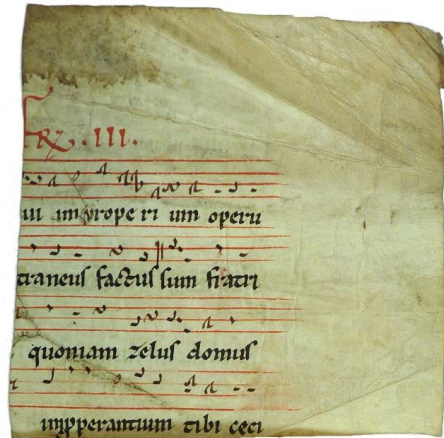 .III.
ui im prope ri um operu
traneus factus sum fratri
quoniam zelus domus
impperantium tibi ceci